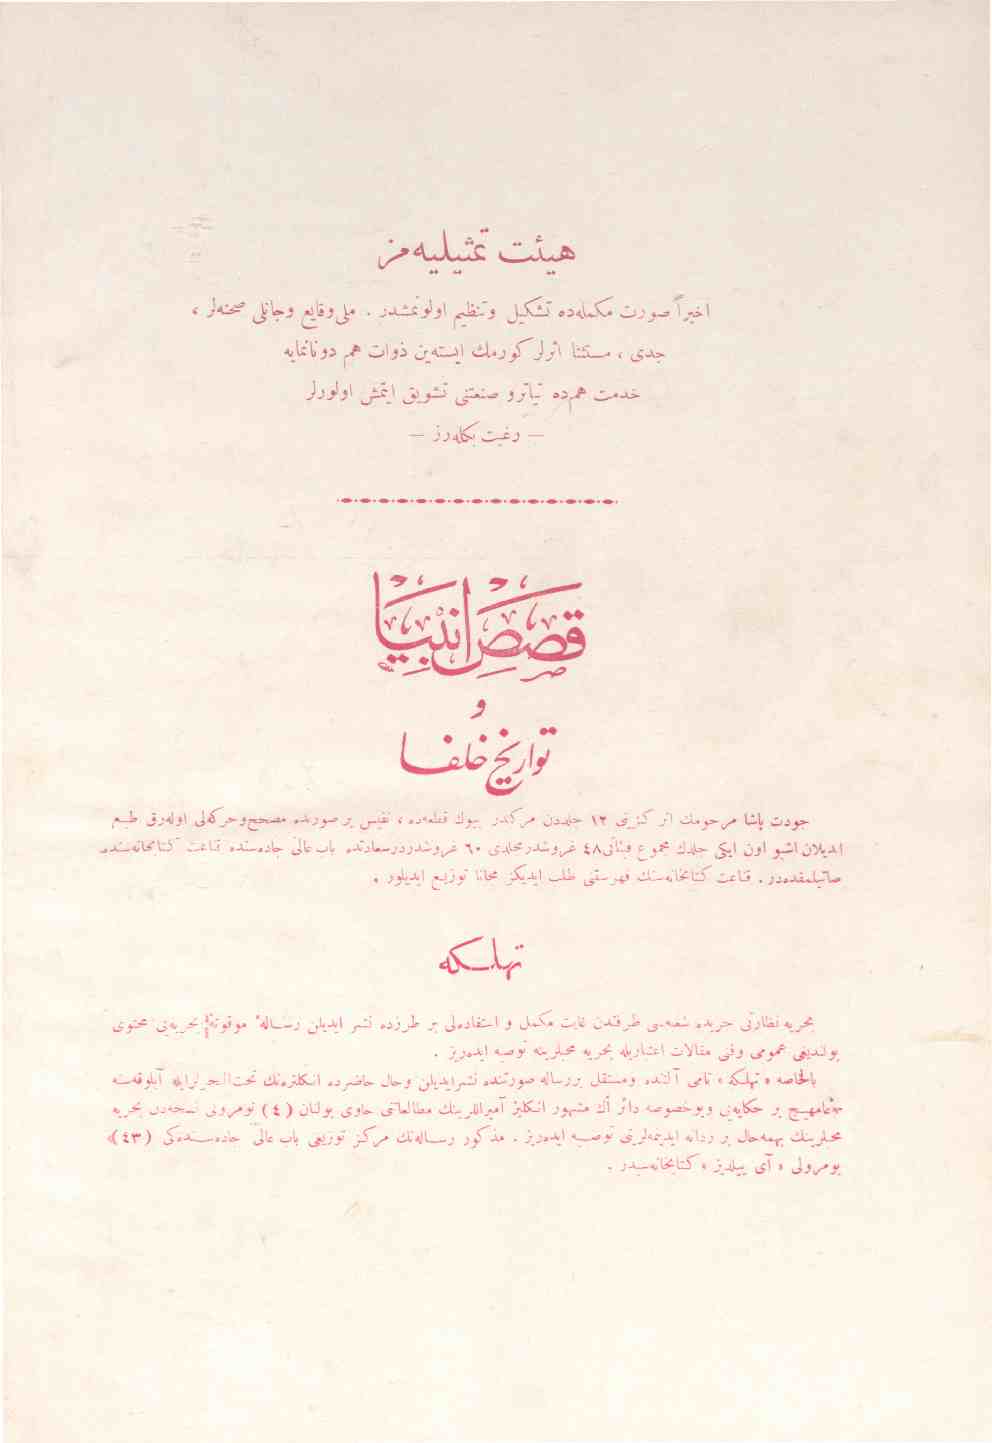 هیئت تمثیلیه‌مز
اخیراً صورت مکمله‌ده تشکیل وتنظیم اولونمشدر . ملی وقایع وجانلی صحنه‌لر ،
جدی ، مستثنا اثرلر کورمك ایسته‌ین ذوات هم دونانمایه
خدمت هم‌ده تیاترو صنعتنی تشویق ایتمش اولورلر
— رغبت بکله‌رز —
قصص انبیا
و
تواریخ خلفا
جودت پاشا مرحومك اثر کزینی ۱۲ جلددن مرکبدر بیوك قطعه‌ده ، نفیس بر صورتده مصحح وحرکه‌لی اوله‌رق طبع
ایدیلان اشبو اون ایکی جلدك مجموع فیئاتی ٤۸ غروشدر مجلدی ٦۰ غروشدر درسعادتده باب عالی جاده‌سنده قناعت کتابخانه‌سنده
صاتیلمقده‌در . قناعت کتابخانه‌سنك فهرستنی طلب ایدیکز مجانا توزیع ایدیلور .
تهلکه
بحریه نظارتی جریده شعبه‌سی طرفندن غایت مکمل و استفاده‌لی بر طرزده نشر ایدیلن رسالهٔ موقوتهٔ بحریه‌نی محتوی
بولندیغی عمومی وفنی مقالات اعتباریله بحریه محبلرینه توصیه ایده‌ریز .
بالخاصه « تهلکه » نامی آلتنده ومستقل بررساله صورتنده نشرایدیلن وحال حاضرده انکلتره‌نك تحت‌البحرلرایله آبلوقه‌سنه
مهیج بر حکایه‌یی وبوخصوصه دائر اك مشهور انکلیز آمیراللرینك مطالعاتنی حاوی بولنان ( ٤ ) نومرولی نسخه‌دن بحریه
محبلرینك بهمه‌حال بر دانه ایدینمه‌لرینی توصیه ایده‌ریز . مذکور رساله‌نك مرکز توزیعی باب عالی جاده‌سنده‌کی ( ٤۳ )
نومرولی « آی ییلدیز » کتابخانه‌سیدر .